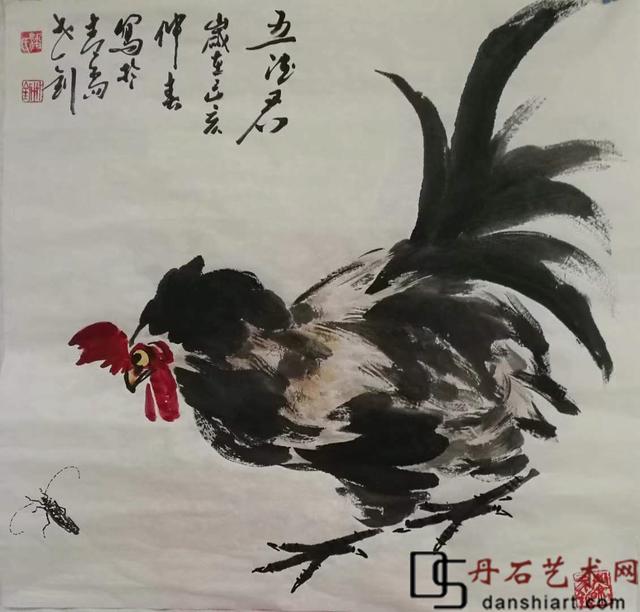 五德君
歲在己亥
仲春
寫於
青島
丹石艺术网
danshiart.com